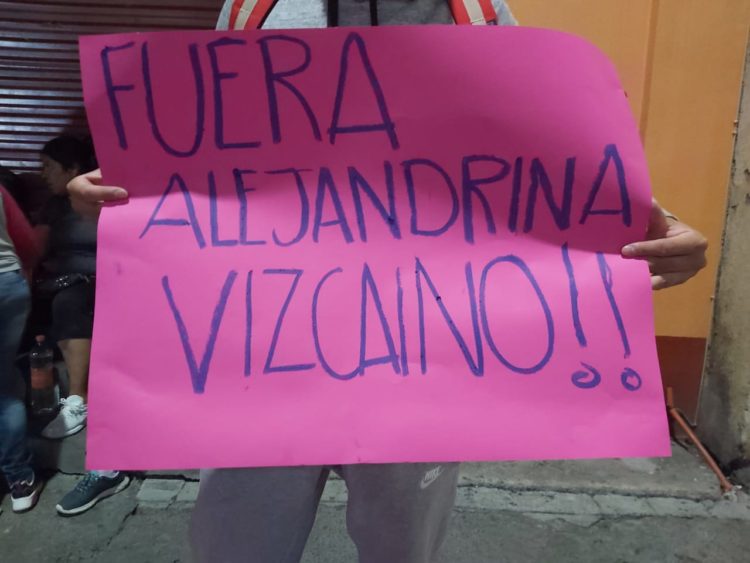 FUERA
ALEJANDRINA
VIZCAINO!!